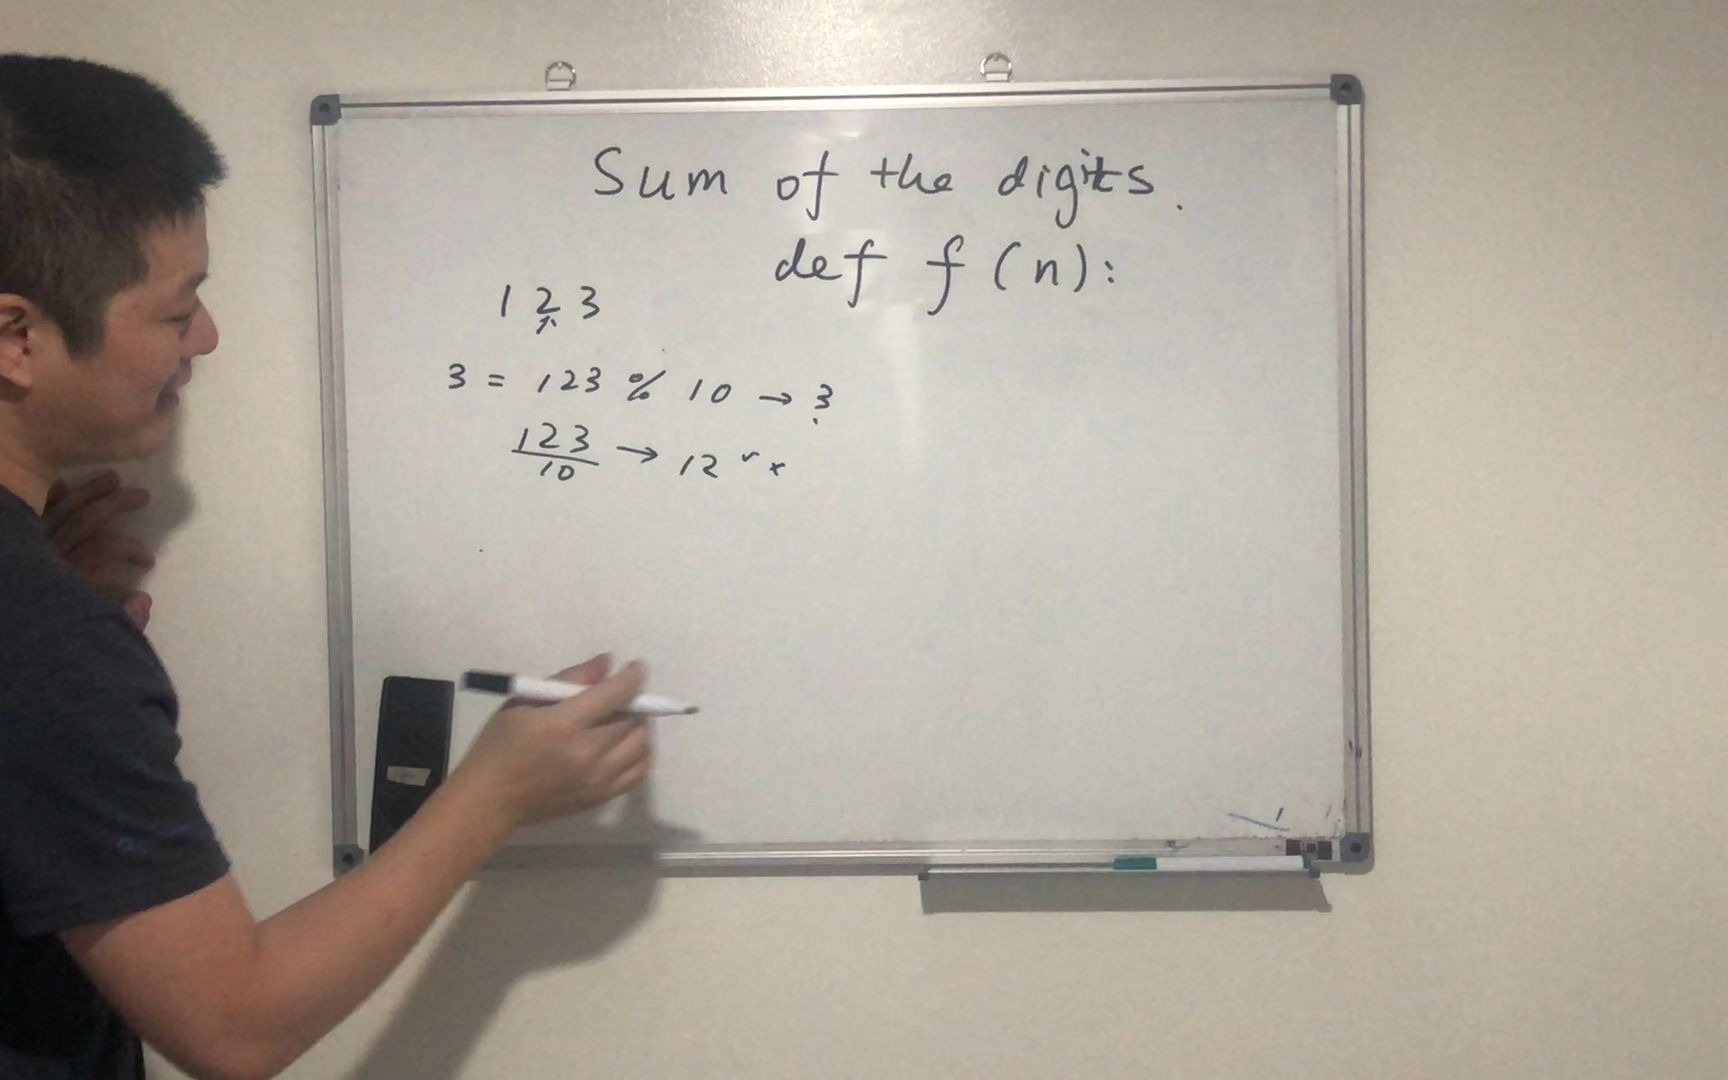 Sum of the digits.
def f(n):
1 2 3
3 = 123 % 10 → 3
123
10 → 12 r x